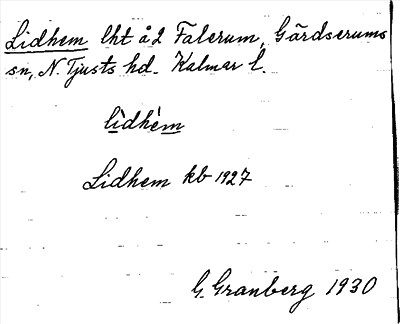 Lidhem lht å 2 Falerum, Gärdserums
sn, N. Tjusts hd. Kalmar l.
lìdhèm
Lidhem kb 1927
G. Granberg 1930